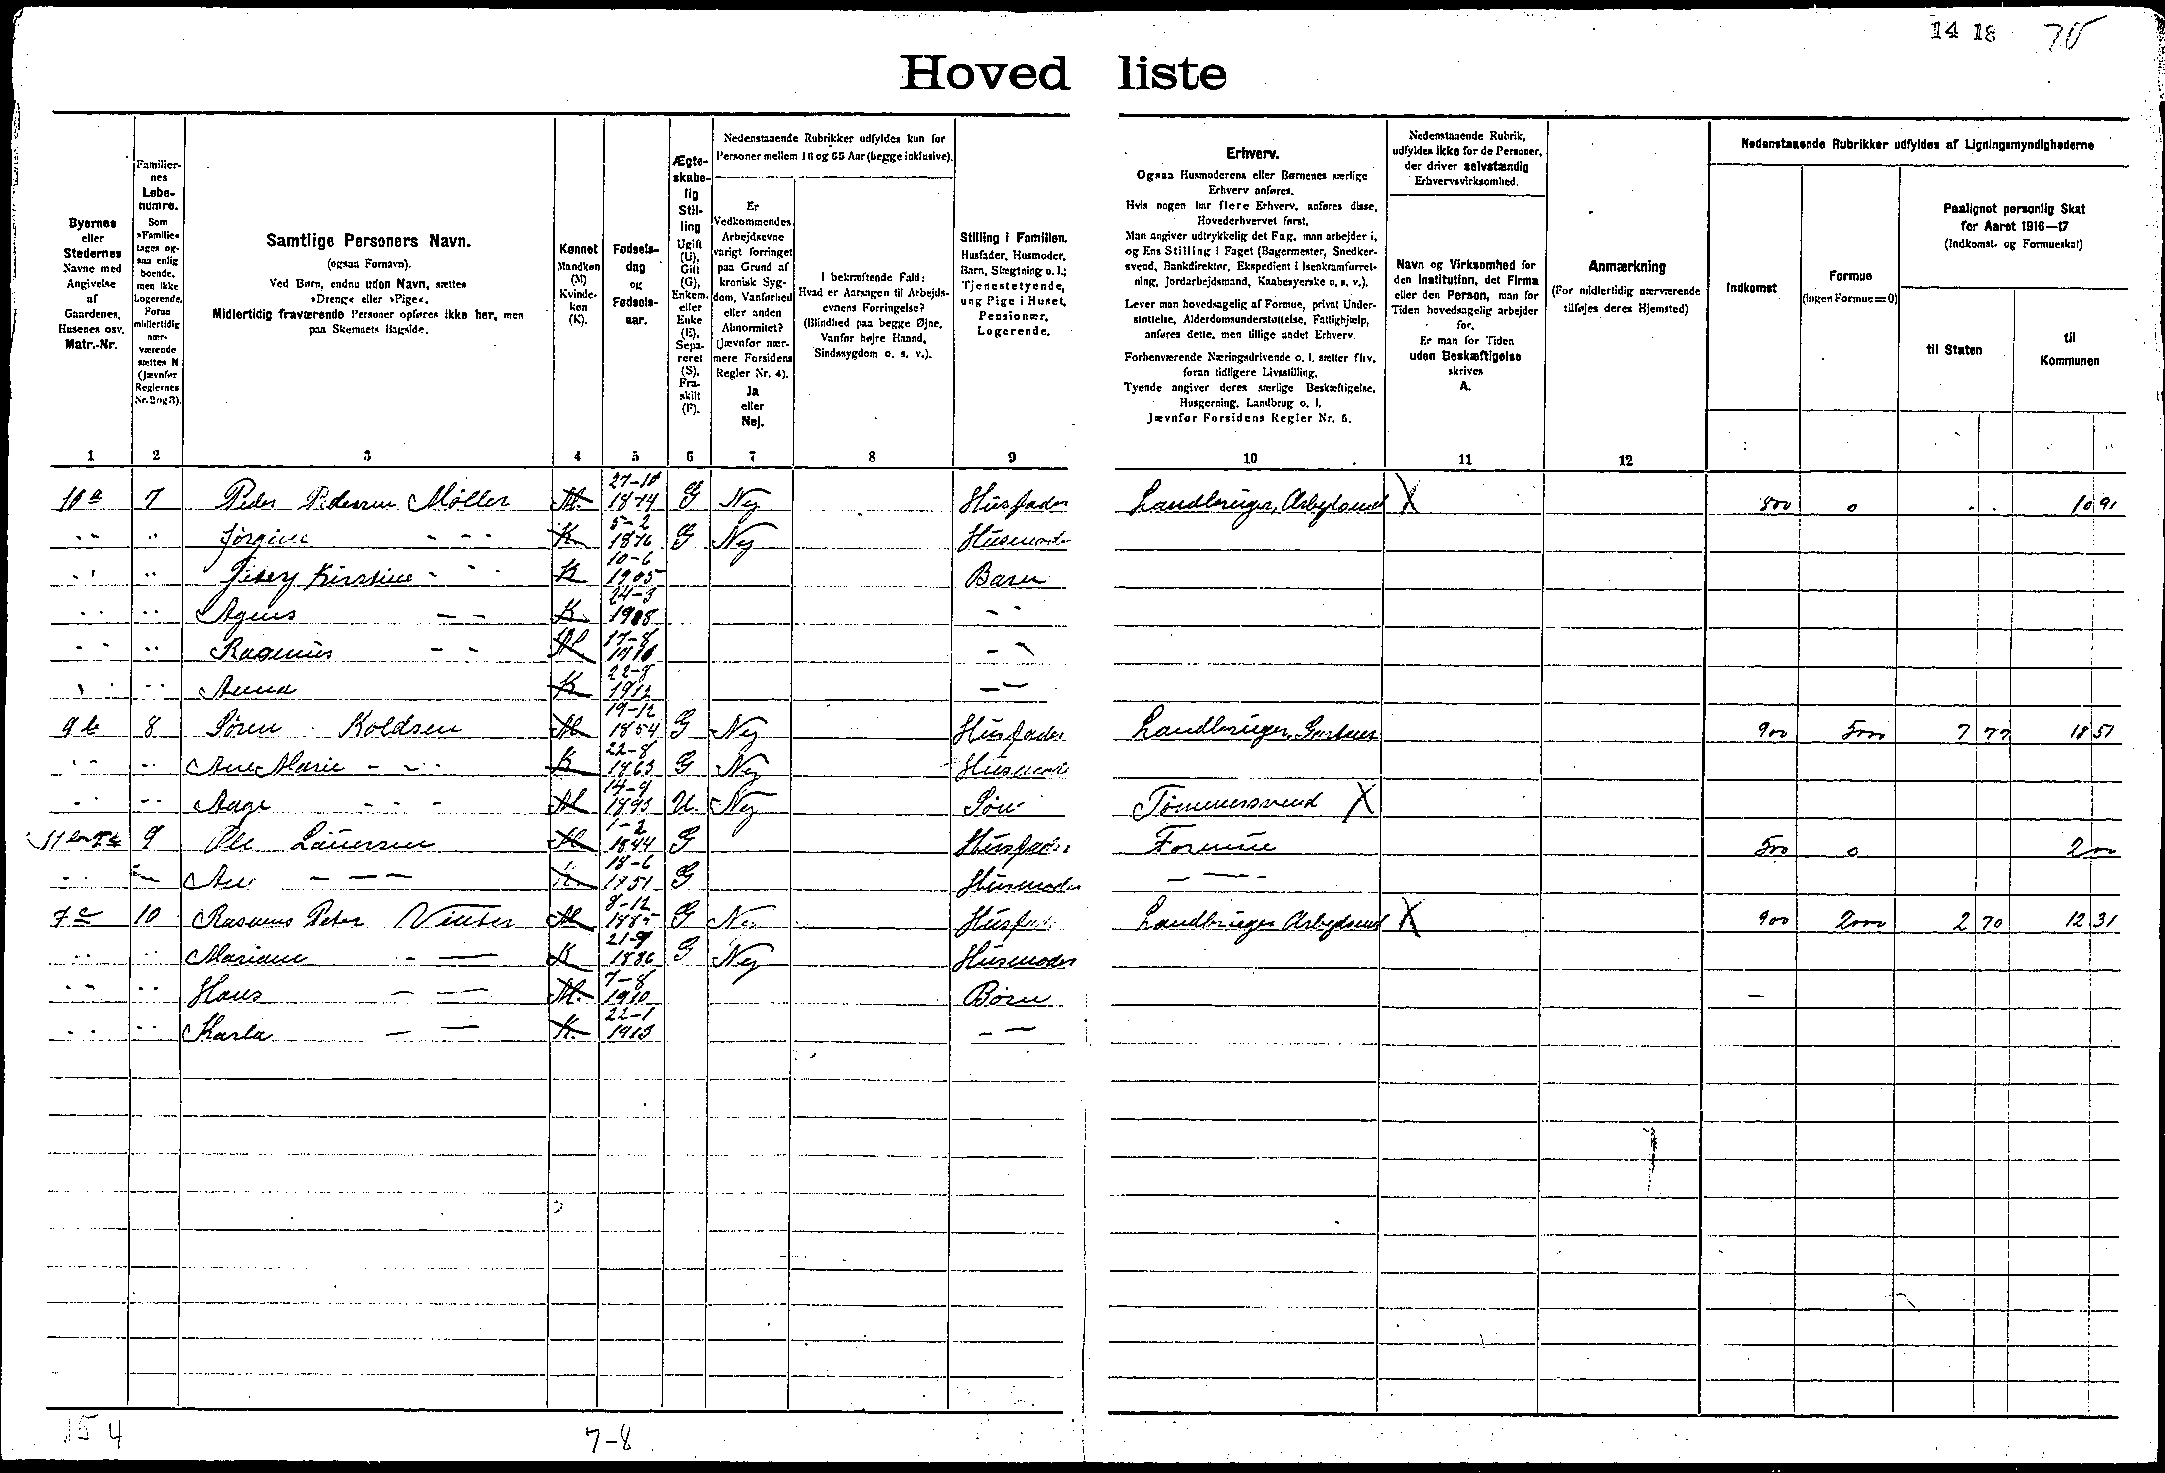 14 18 70
Hoved liste
Byernes eller Stedernes Navne med Angivelse af Gaardenes, Husenes osv. Matr.-Nr.
Familiernes Løbenumre. Som »Familie« tages ogsaa enlig boende, men ikke Logerende. Foran midlertidig nærværende sættes N (Jævnfør Reglernes Nr. 2 og 3).
Samtlige Personers Navn.
(ogsaa Fornavn).
Ved Børn, endnu uden Navn, sættes »Dreng« eller »Pige«.
Midlertidig fraværende Personer opføres ikke her, men paa Skemaets Bagside.
Kønnet Mandkøn (M) Kvindekøn (K).
Fødselsdag og Fødselsaar.
Ægteskabelig Stilling Ugift (U), Gift (G), Enkem. eller Enke (E), Separeret (S), Fraskilt (F).
Nedenstaaende Rubrikker udfyldes kun for Personer mellem 18 og 65 Aar (begge inklusive).
Er Vedkommendes Arbejdsevne varigt forringet paa Grund af kronisk Sygdom, Vanførhed eller anden Abnormitet? (Jævnfør nærmere Forsidens Regler Nr. 4). Ja eller Nej.
I bekræftende Fald: Hvad er Aarsagen til Arbejdsevnens Forringelse? (Blindhed paa begge Øjne, Vanfør højre Haand, Sindssygdom o. s. v.).
Stilling i Familien. Husfader, Husmoder, Barn, Slægtning o. l.; Tjenestetyende, ung Pige i Huset, Pensionær, Logerende.
Erhverv.
Ogsaa Husmoderens eller Børnenes særlige Erhverv anføres.
Hvis nogen har flere Erhverv, anføres disse, Hovederhvervet først.
Man angiver udtrykkelig det Fag, man arbejder i, og Ens Stilling i Faget (Bagermester, Snedkersvend, Bankdirektør, Ekspedient i Isenkramforretning, Jordarbejdsmand, Kaabesyerske o. s. v.).
Lever man hovedsagelig af Formue, privat Understøttelse, Alderdomsunderstøttelse, Fattighjælp, anføres dette, men tillige andet Erhverv.
Forhenværende Næringsdrivende o. l. sætter fhv. foran tidligere Livsstilling.
Tyende angiver deres særlige Beskæftigelse, Husgerning, Landbrug o. l.
Jævnfør Forsidens Regler Nr. 6.
Nedenstaaende Rubrik, udfyldes ikke for de Personer, der driver selvstændig Erhvervsvirksomhed.
Navn og Virksomhed for den Institution, det Firma eller den Person, man for Tiden hovedsagelig arbejder for.
Er man for Tiden uden Beskæftigelse skrives A.
Anmærkning
(For midlertidig nærværende tilføjes deres Hjemsted)
Nedenstaaende Rubrikker udfyldes af Ligningsmyndighederne
Indkomst
Formue (Ingen Formue = 0)
Paalignet personlig Skat for Aaret 1916—17 (Indkomst- og Formueskat)
til Staten
til Kommunen
1 2 3 4 5 6 7 8 9 10 11 12
10a 7 Peder Pedersen Møller M. 27-10 1874 G Nej Husfader Landbruger, Arbejdsmd X 800 0 10 91
" " Jørgine - - - K. 5-2 1876 G Nej Husmoder
" " Kirstine - " - K 10-6 1905 Barn
" " Agnes — — K. 24-3 1908 - "
" " Rasmus - - M 17-8 1910 - "
" " Anna K 22-8 1912 — —
9b 8 Søren Koldsen M. 19-12 1854 G Nej Husfader Landbruger, 900 5000 7 77 18 51
" " Ane Marie - - - K 22-8 1863 G Nej Husmoder
" " Aage - - - M 14-9 1893 U. Nej Søn Tømmersvend X
9 Ole Laursen M 1-2 1844 G Husfader Formue 500 0 2 00
" " Ane — — — K. 18-6 1851 G Husmoder — — —
7c 10 Rasmus Peter Vinter M 8-12 1885 G Nej Husfader Landbruger Arbejdsmd X 900 2000 2 70 12 31
" " Mariane - — K 21-9 1886 G Nej Husmoder
" " Hans — — M. 7-8 1910 Børn —
" " Karla — — K. 22-1 1913 — —
15 4 7-8